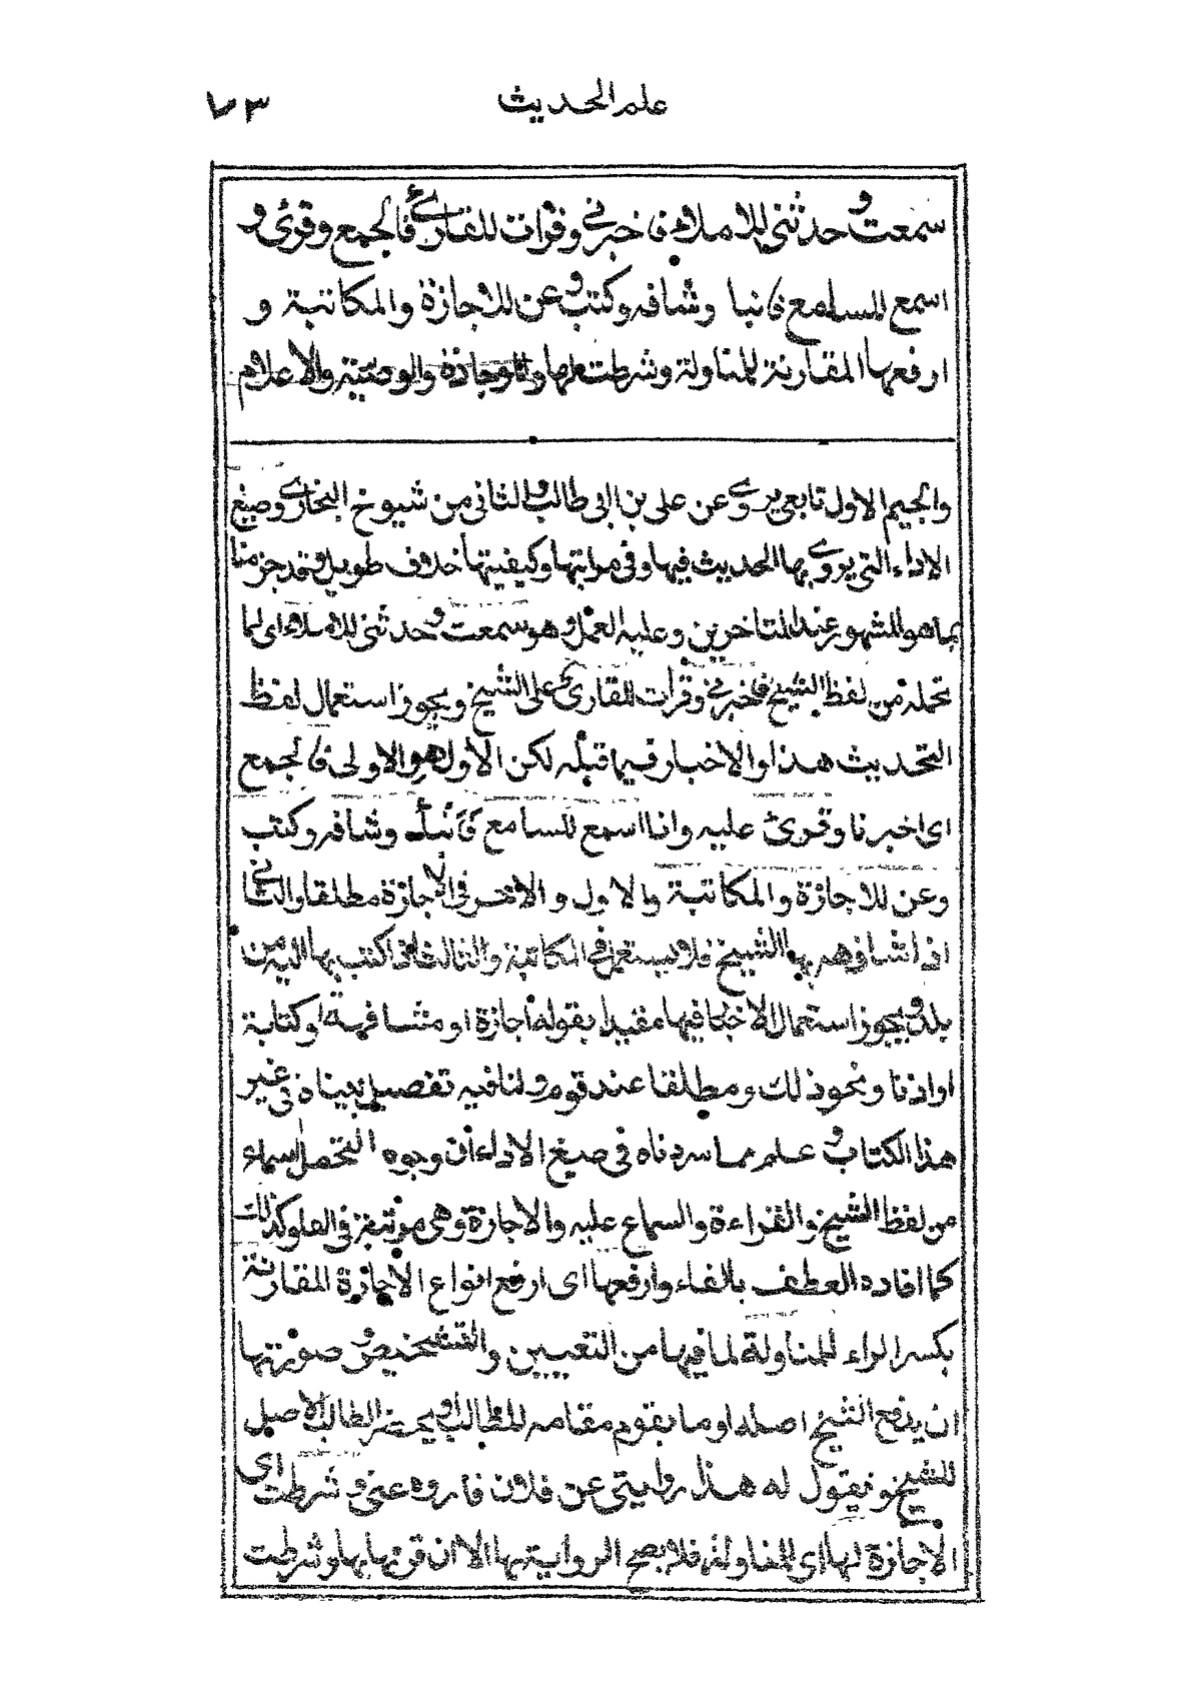 علم الحديث ٧٣
سمعت و حدثني للاملاء فاخبرني و قرات للقارئ فالجمع و قرئ و
اسمع للسامع فانبا وشافه وكتب و عن للاجازة والمكاتبة و
ارفعها المقارنة للمناولة وشرطت لها وللوجادة والوصية والاعلام
والجيم الاول تابعي يروي عن علي بن ابي طالب والثاني من شيوخ البخاري وصيغ
الاداء التي يروي بها الحديث فيها وفي مراتبها وكيفيتها خلاف طويل وقد جزمنا
بما هو المشهور عند المتاخرين وعليه العمل وهو سمعت و حدثني للاملاء اي لما
تحمله من لفظ الشيخ فاخبرني و قرات للقارئ على الشيخ ويجوز استعمال لفظ
التحديث هذا والاخبار فيما قبله لكن الاول هو الاولى فالجمع
اي اخبرنا وقرئ عليه وانا اسمع للسامع فانبا وشافه وكتب
وعن للاجازة والمكاتبة والاول والاخر في الاجازة مطلقا والثاني
اذا شافهه بها الشيخ فلا يستعمل في المكاتبة والثالث اذا كتب بها اليه من
بلد ويجوز استعمال الاخبار فيها مقيدا بقوله اجازة او مشافهة او كتابة
او اذنا ونحو ذلك ومطلقا عند قوم ولنا فيه تفصيل بيناه في غير
هذا الكتاب و علم مما سردناه في صيغ الاداء ان وجوه التحمل السماع
من لفظ الشيخ والقراءة والسماع عليه والاجازة وهي مرتبة في العلو كذلك
كما افاده العطف بالفاء وارفعها اي ارفع انواع الاجازة المقارنة
بكسر الراء للمناولة لما فيها من التعيين والتشخيص و صورتها
ان يدفع الشيخ اصله او ما يقوم مقامه للطالب او يحضر الطالب الاصل
للشيخ ويقول له هذا روايتي عن فلان فاروه عني و شرطت اي
الاجازة لها اي للمناولة فلا يصح الرواية بها الا ان قرنها بها وشرطت